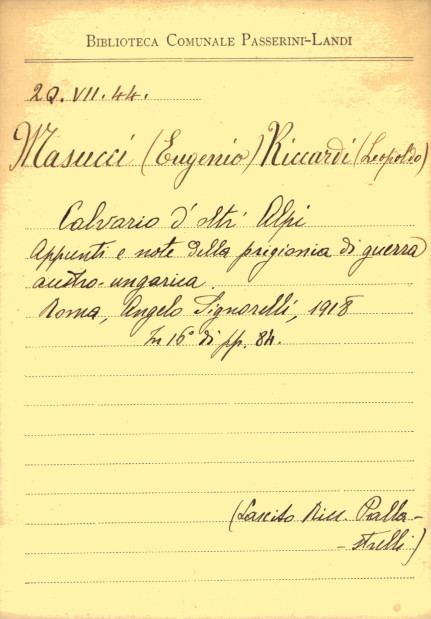 BIBLIOTECA COMUNALE PASSERINI-LANDI
2Q.VII.44.
Masucci (Eugenio) Riccardi (Leopoldo)
Calvario d'oltr' Alpi
Appunti e note della prigionia di guerra
austro-ungarica.
Roma, Angelo Signorelli, 1918
In 16° di pp. 84.
(Lascito Picc. Palla-
-strelli)